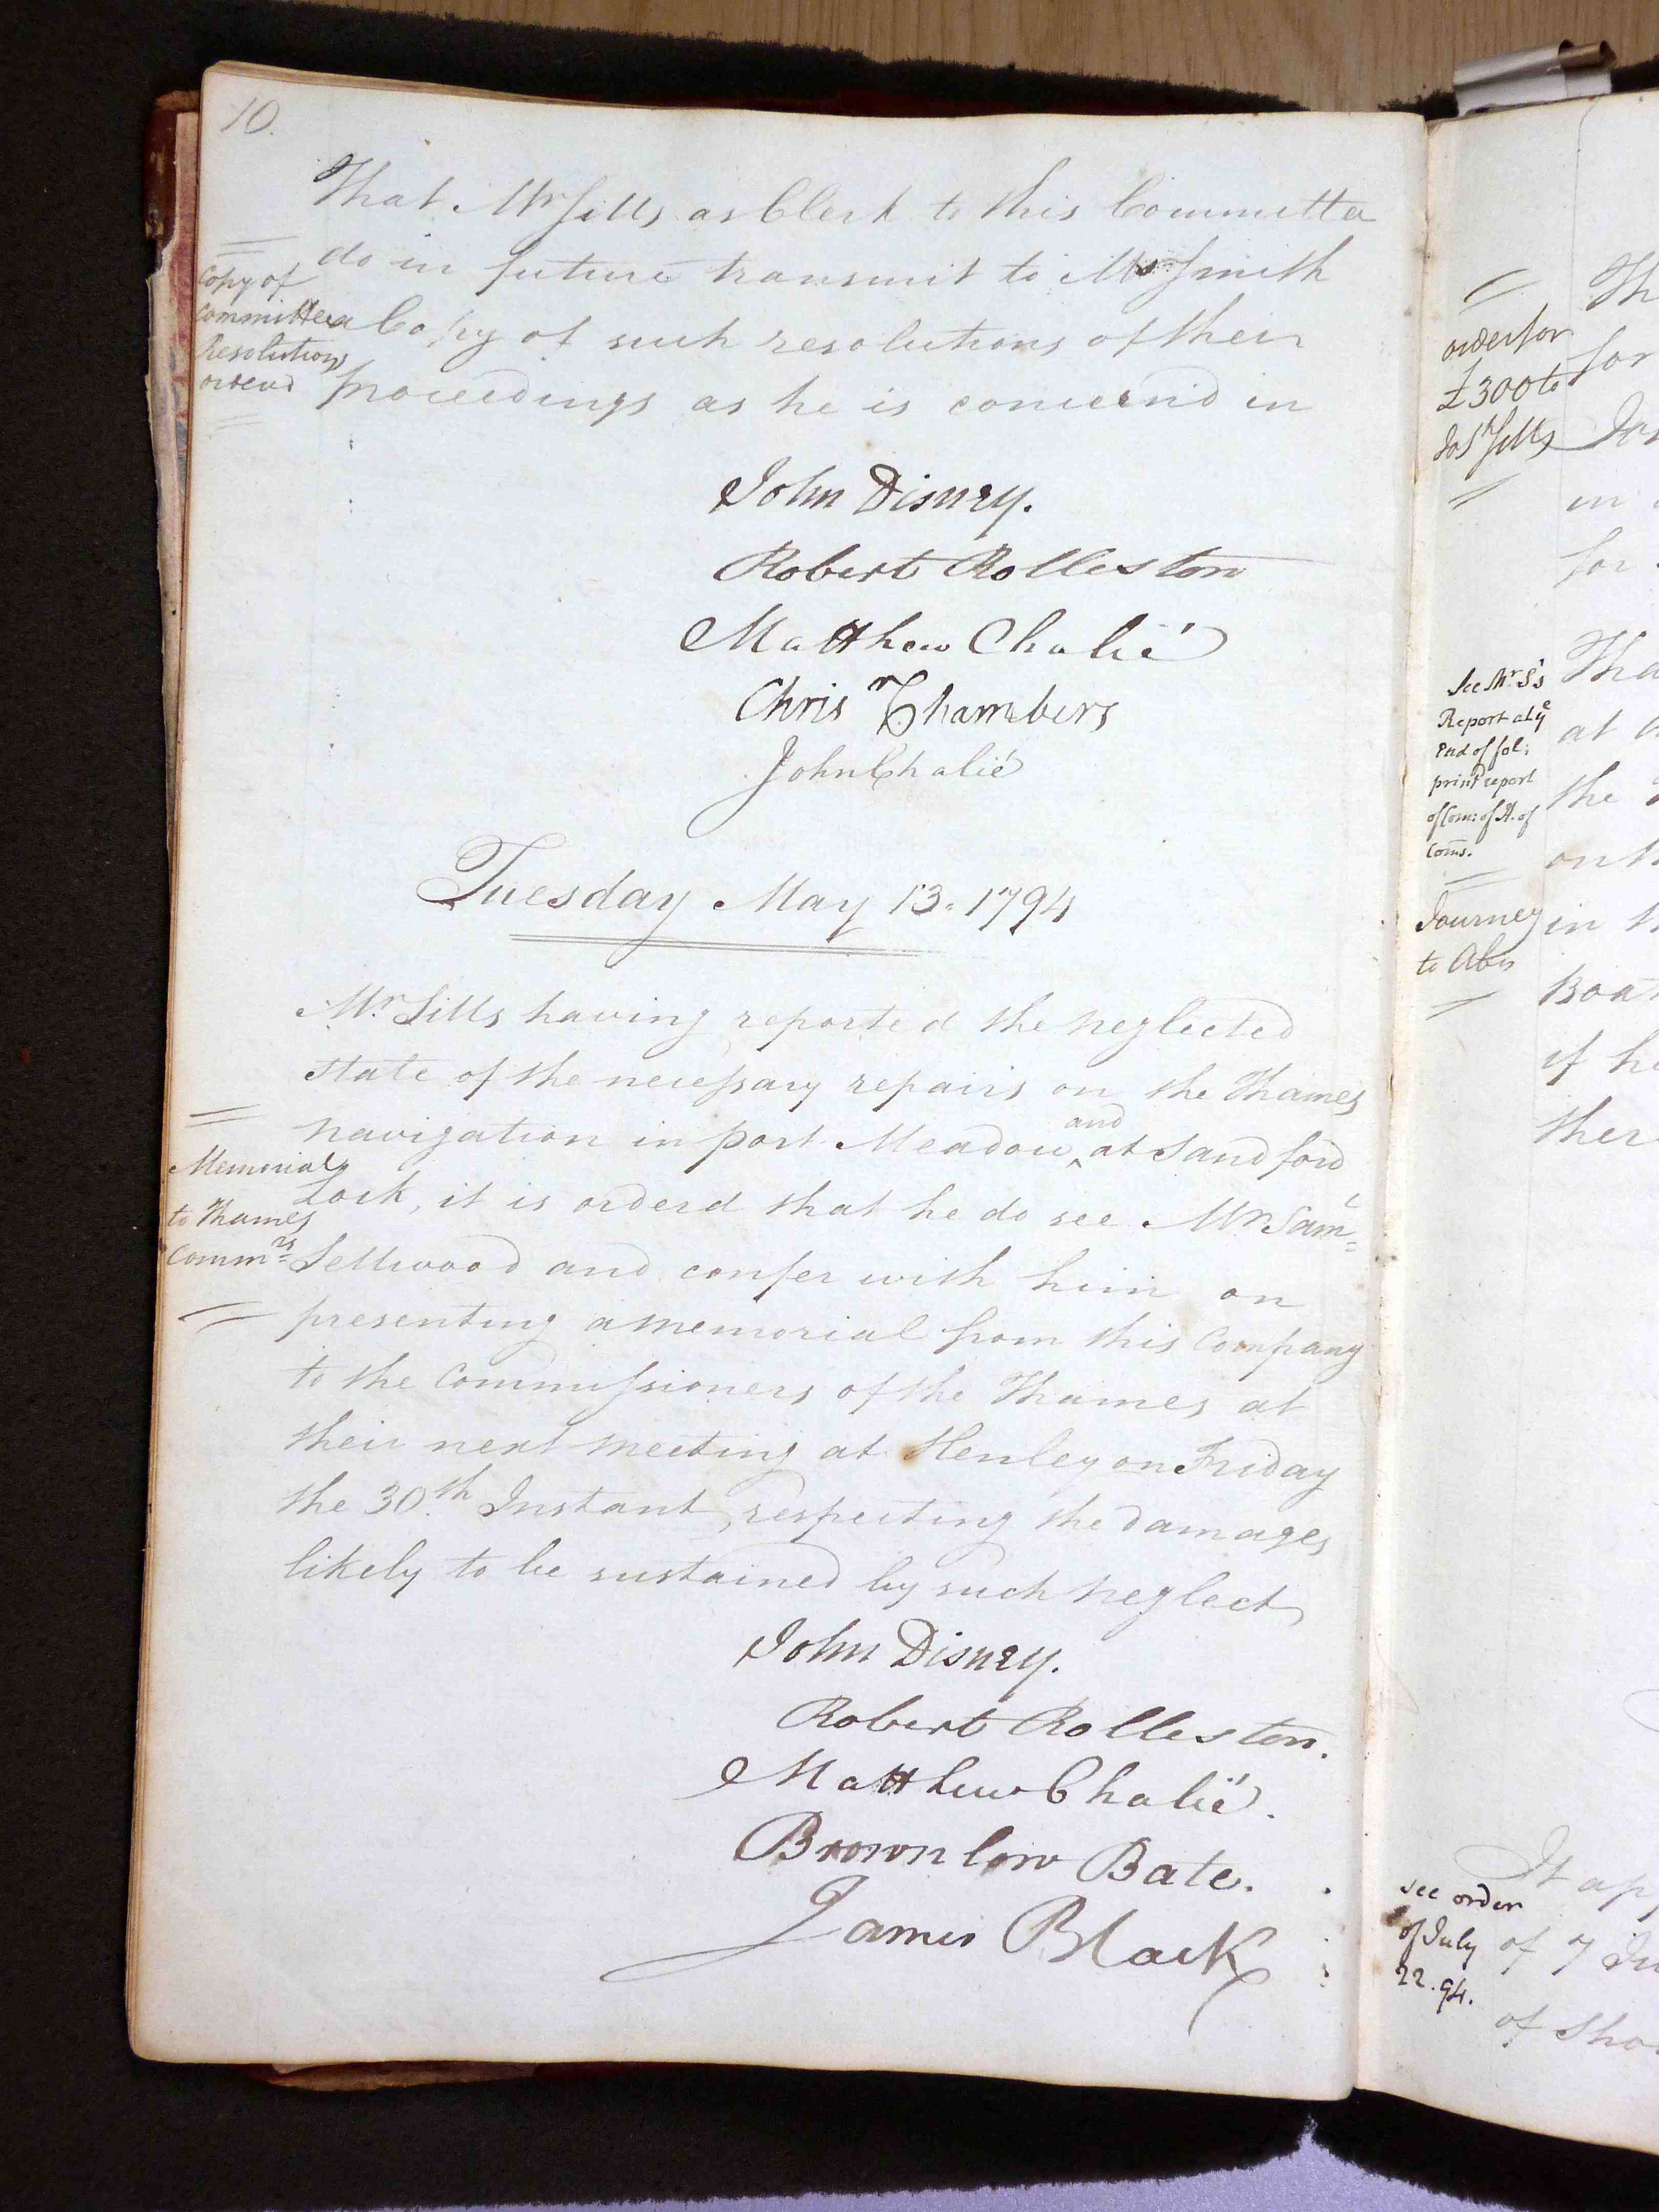 10.
That Mr Sills as Clerk to this Committee
do in future transmit to Mr Smith
a Copy of such resolutions of their
proceedings as he is concernd in
Copy of
Committee
Resolutions
orderd
John Disney.
Robert Rolleston
Matthew Chalié
Chrisr Chambers
John Chalié
Tuesday May 13. 1794
Mr. Sills having reported the neglected
state of the necessary repairs on the Thames
navigation in port Meadow and at Sandford
Lock, it is orderd that he do see Mr Saml
Sellwood and confer with him on
presenting a memorial from this Company
to the Commissioners of the Thames at
their next meeting at Henley on Friday
the 30.th Instant, respecting the damages
likely to be sustained by such neglect
Memorial
to Thames
Commrs
John Disney.
Robert Rolleston.
Matthew Chalié.
Brownlow Bate.
James Black
Th
for
in
for
order for
£300 to
Jos Sills
Tha
at
the
on
in
Boa
if he
ther
See Mr. S's
Report at ye
End of fol:
print report
of Com: of H. of
Coms.
Journey
to Abn
It app
of 7
of Sho
see order
of July
22. 94.